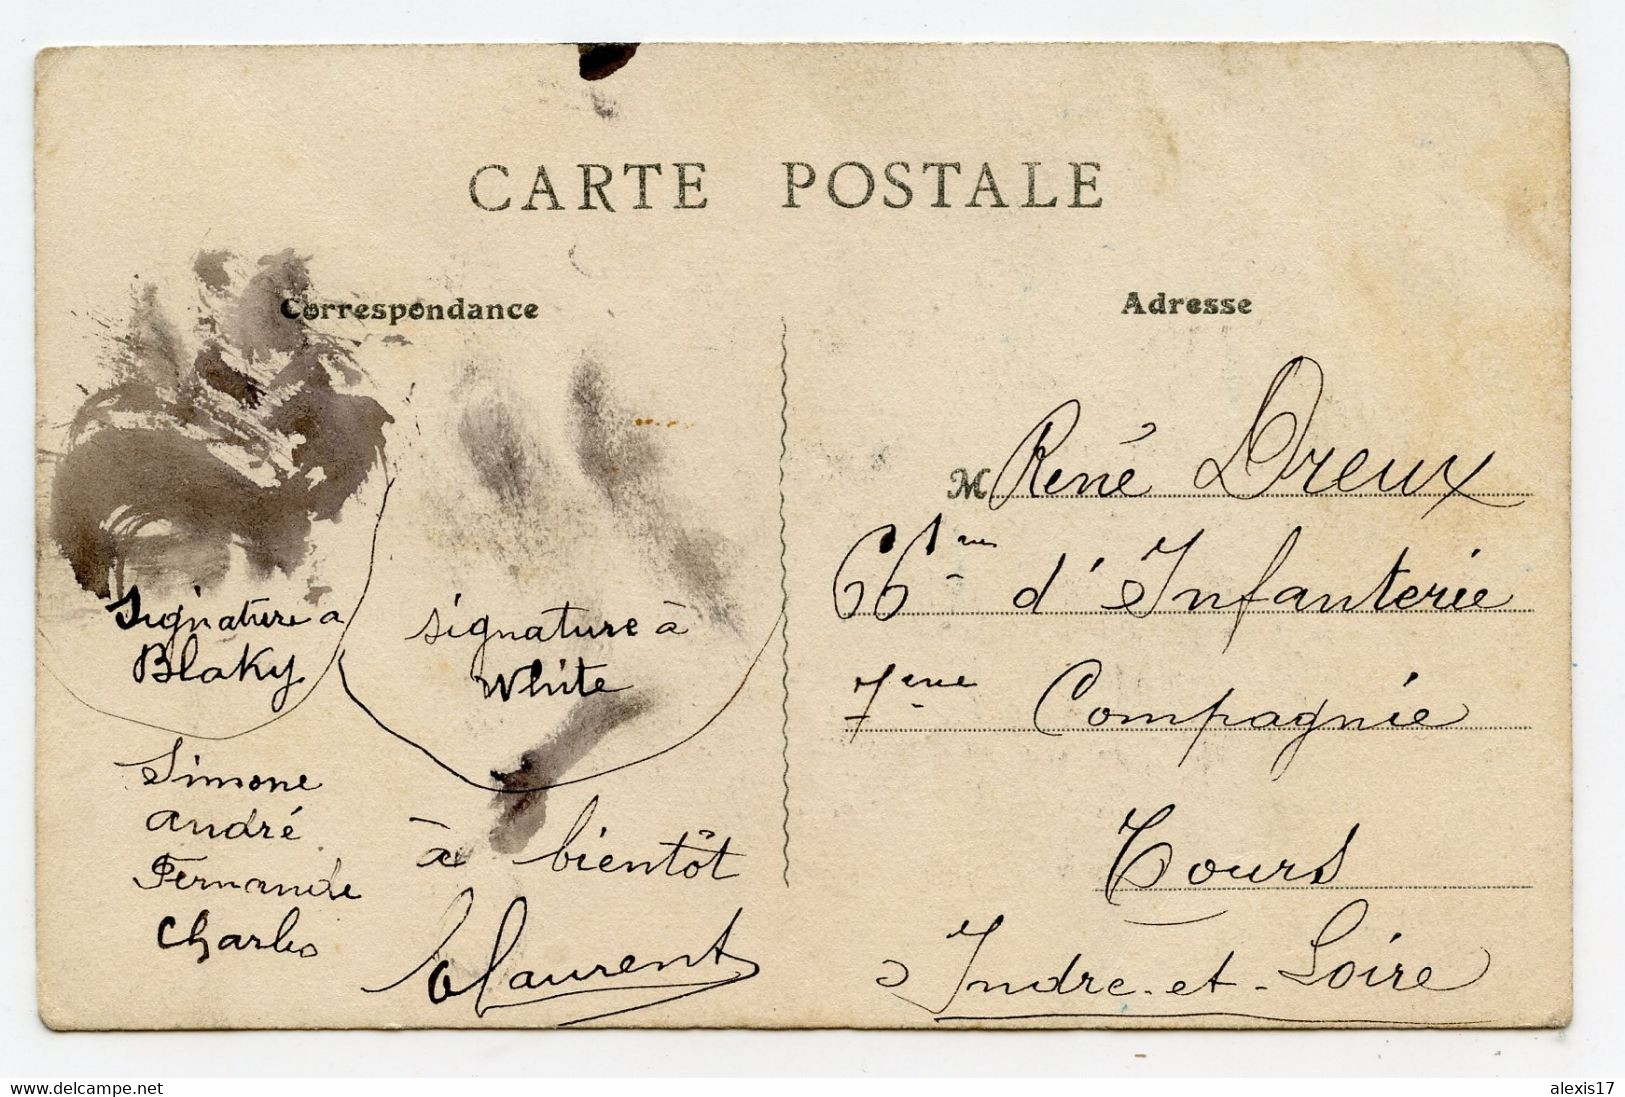 CARTE POSTALE
Correspondance
Signature a
Blaky
signature à
White
Simone
André
Fernande
Charles
à bientôt
Laurent
Adresse
M René Dreux
66ème d'Infanterie
7ème Compagnie
Tours
Indre-et-Loire
https://www.delcampe.net
alexis17